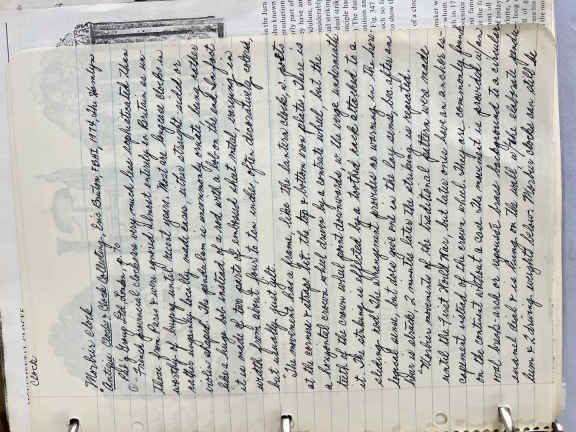 Clock
Morbier Clock
"Antique Clocks & Clock Collecting, Eric Bruton, FBHI, 1974, The Hamlyn
Pub. Group Ltd, London, p. 70
French provincial clocks are very much less sophisticated than
those from Paris & were ignored almost entirely in Britain as un-
worthy of buying until recent years. Most are longcase clocks in
rather ungainly locally made cases, either straight sided or
violin shaped. The pendulum is uncommonly ornate, being rather
like a huge bob instead of a rod with a bob on the end. In fact
it is made of two parts of embossed sheet metal, varying in
width from about four to ten inches, often decoratively colored,
but usually just gilt.
"The movement has a frame, like the lantern clock, of posts
at the corners & straps. But the top & bottom are plates. There is
a horizontal crown wheel driven by a contrate wheel, but the
teeth of the crown wheel point downwards so the verge is underneath
it. The striking is effected by a toothed rack attached to a
sliding rod. The arrangement provides no warning in the horo-
logical sense, but does give one in the lay sense, bec. after an
hour is struck, 2 minutes later the striking is repeated.
"Morbier movements of the traditional pattern were made
until the First World War, but later ones have an anchor es-
capement instead of the crown wheel. They are commonly found
on the continent without a case the movement is provided with an
oval brass or repoussé brass background to a circular
enamel dial & is hung on the wall with the elaborate pend-
ulum & 2 driving weights below. Morbier clocks can still be